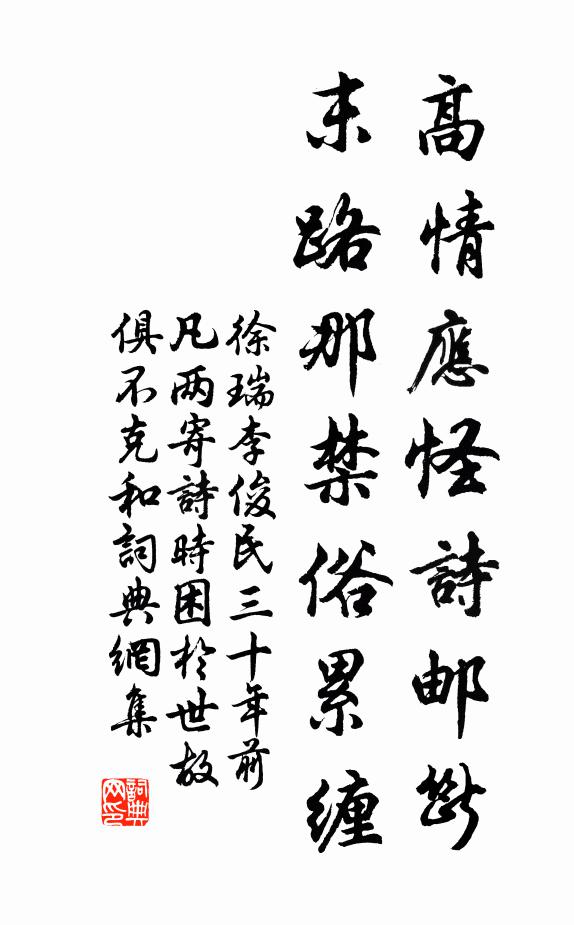 高情應怪詩邮断
末路那禁俗累纏
徐瑞李俊民三十年前
凡两寄詩時困於世故
俱不克和詞典網集
詞典
网印